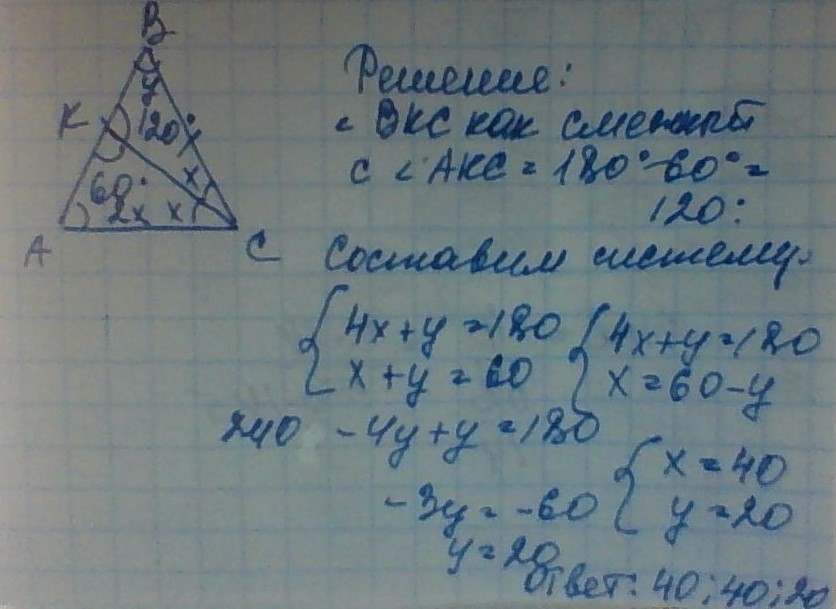 B
y
K
120°
x
60°
2x x
A
C
Решение:
∠ BKC как смежный
с ∠ AKC = 180° - 60° =
120°
Составим систему:
{ 4x + y = 180
x + y = 60
{ 4x + y = 180
x = 60 - y
240 - 4y + y = 180
- 3y = - 60
y = 20
{ x = 40
y = 20
Ответ: 40; 40; 20